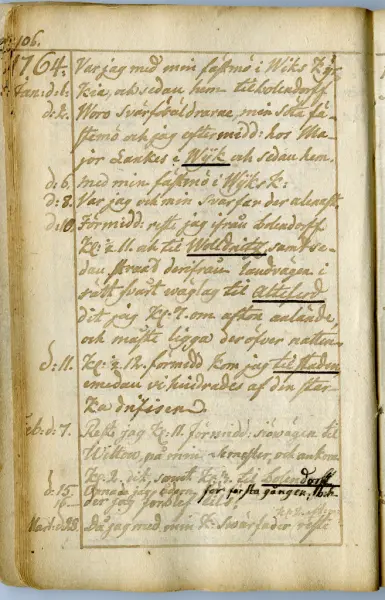 106.
1764. Var jag med min fästmö i Wiks Kyr
Jan: d: 1. kia, och sedan hem til Bolendorff
d: 2. Woro Svärföräldrarne, min K: fä-
stemö och jag eftermidd: hos Ma-
jor Lankes i Wyk och sedan hem.
d: 6. med min fästmö i Wyks K:
d: 8. Var jag och min Svärfar der
d: 10. Förmidd: reste jag ifrån Bolendorff
Kl: 11. och til Wolldnitz, samt se-
dan straxt derifrån landvägen i
svart wäglag til Altefard
dit jag Kl: 7. om afton anlände,
och måste ligga der öfver natten
d: 11. Kl: 12. förmidd kom jag til staden
emedan vi hindrades af den star-
ka drifisen
Feb: d: 7. Reste jag Kl: 11. förmidd: siöwägen til
Wittow, på min Semester, och ankom
Kl: 2. dit, samt Kl: til Bolendorff
d: 15. jag för första gången,
16 jag
Mart: d: 23. Då jag med min K: Svärfader reste